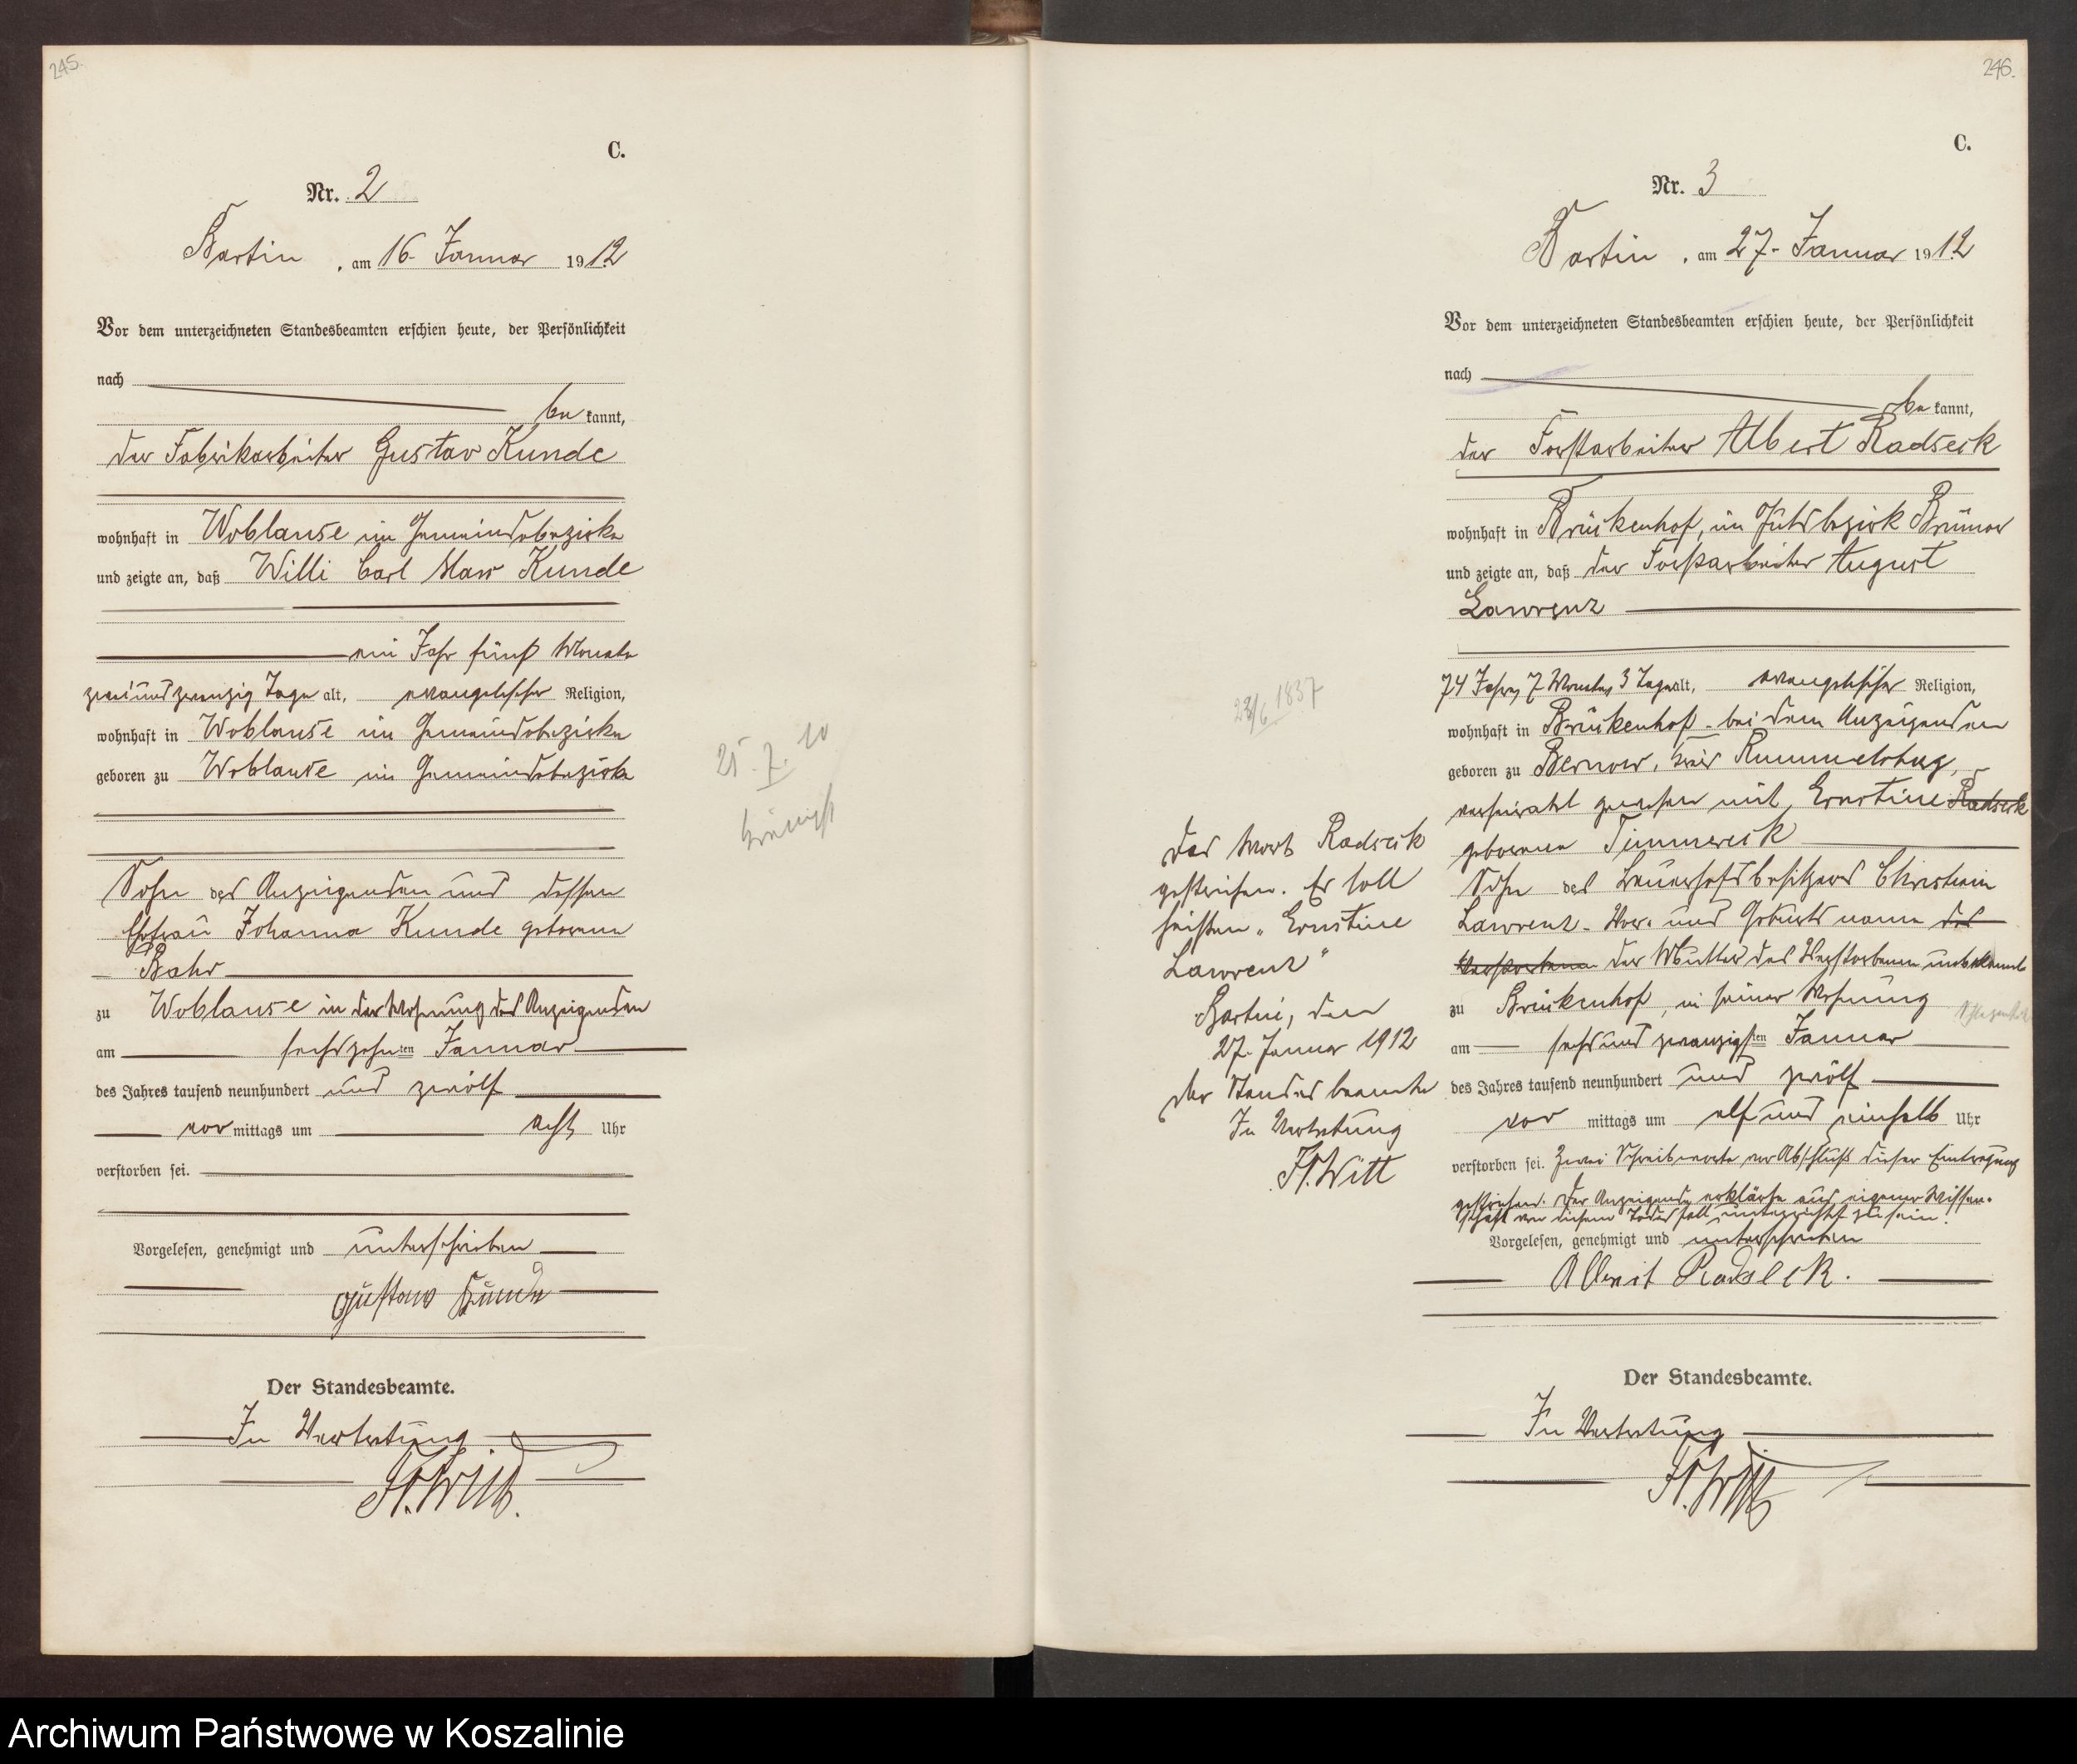 245.
C.
Nr. 2
Bartin, am 16. Januar 1912
Vor dem unterzeichneten Standesbeamten erschien heute, der Persönlichkeit
nach
be kannt,
der Fabrikarbeiter Gustav Kunde
wohnhaft in Woblanse im Gemeindebezirke
und zeigte an, daß Willi Carl Max Kunde
ein Jahr fünf Monate
zweiundzwanzig Tage alt, evangelischer Religion,
wohnhaft in Woblanse im Gemeindebezirke
geboren zu Woblanse im Gemeindebezirke
25. 7. 10
Sohn des Anzeigenden und dessen
Ehefrau Johanna Kunde geborene
Bahr
zu Woblanse in der Wohnung des Anzeigenden
am sechszehnten Januar
des Jahres tausend neunhundert und zwölf
vor mittags um acht Uhr
verstorben sei.
Vorgelesen, genehmigt und unterschrieben
Gustav Kunde
Der Standesbeamte.
In Vertretung
H. Witt.
246.
C.
Nr. 3
Bartin, am 27. Januar 1912
Vor dem unterzeichneten Standesbeamten erschien heute, der Persönlichkeit
nach
be kannt,
der Forstarbeiter Albert Radseck
wohnhaft in Brückenhof, im Gutsbezirk Brünow
und zeigte an, daß der Forstarbeiter August
Lawrenz
74 Jahre, 7 Monate, 3 Tage alt, evangelischer Religion,
wohnhaft in Brückenhof bei dem Anzeigenden
geboren zu Bernow, Kreis Rummelsburg,
verheirathet gewesen mit Ernstine Radseck
geborene Timmreck
Sohn des Bauerhofsbesitzers Christian
Lawrenz. Vor- und Geburtsname des
Verstorbenen der Mutter des Verstorbenen unbekannt
zu Brückenhof, in seiner Wohnung
am sechsundzwanzigsten Januar
des Jahres tausend neunhundert und zwölf
vor mittags um elf und einhalb Uhr
verstorben sei. Zwei Schreibworte vor Abschluß dieser Eintragung
gestrichen. Der Anzeigende erklärte aus eigener Wissen-
schaft von diesem Todesfall unterrichtet zu sein.
Vorgelesen, genehmigt und unterschrieben
Albert Radseck.
Der Standesbeamte.
In Vertretung
H. Witt
1837
Das Wort Radseck
gestrichen. Es soll
heißen „Ernstine
Lawrenz"
Bartin, den
27. Januar 1912
Der Standesbeamte
In Vertretung
H. Witt
Archiwum Państwowe w Koszalinie